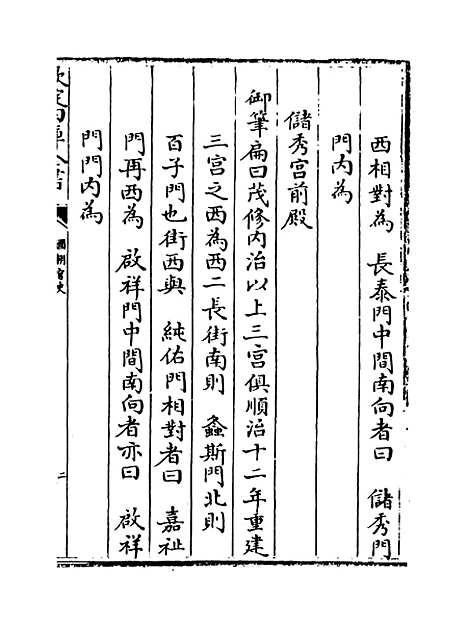 西相對為　長泰門中間南向者曰　儲秀門
門内為
儲秀宫前殿
御筆扁曰茂修内治以上三宫俱順治十二年重建
三宫之西為西二長街南則　螽斯門北則
百子門也街西與　純佑門相對者曰　嘉祉
門再西為　啟祥門中間南向者亦曰　啟祥
門門内為
欽定四庫全書
國朝宫史
二